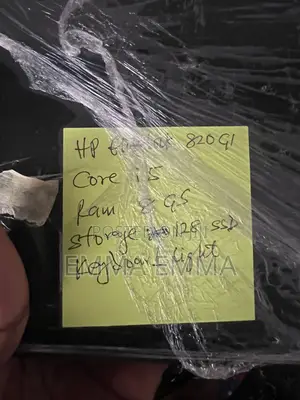 HP 820 G1
Core i5
Ram 8 GB
Storage 128 ssd
Keyboard light
EMMA EMMA